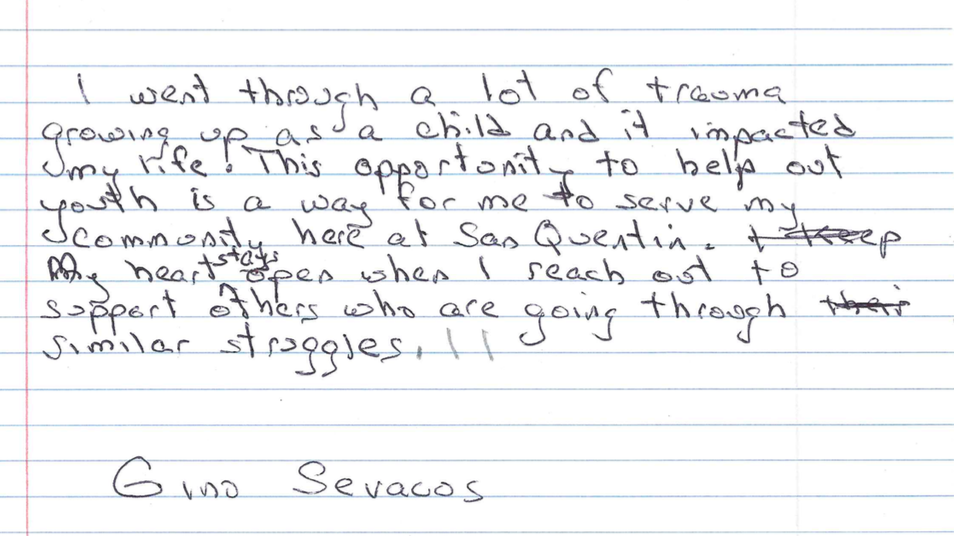 I went through a lot of trauma
growing up as a child and it impacted
my life. This opportunity to help out
youth is a way for me to serve my
community here at San Quentin. I keep
My heart stays open when I reach out to
support others who are going through their
similar struggles.
Gino Sevacos